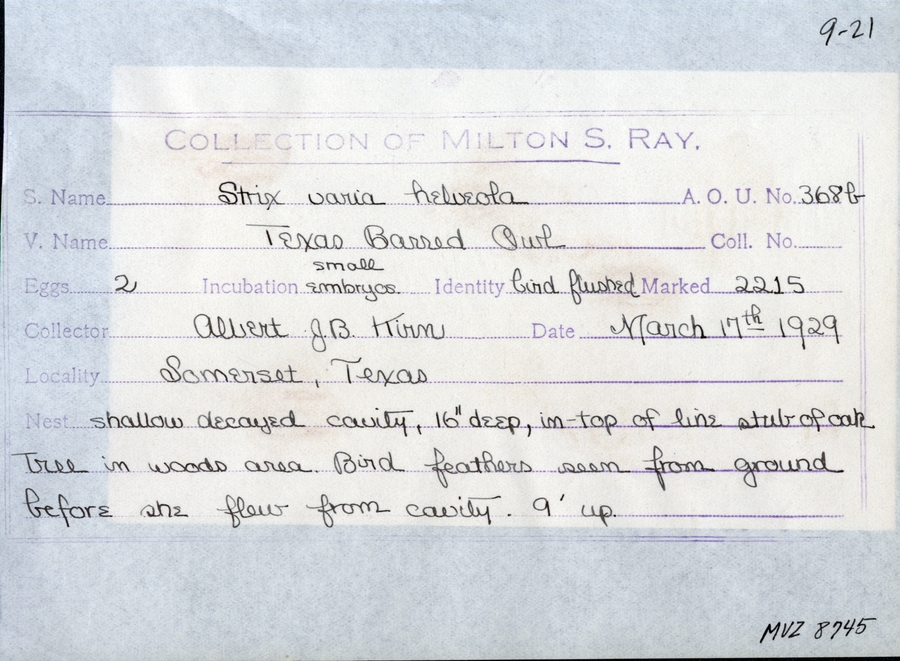 9-21
COLLECTION OF MILTON S. RAY.
S. Name Strix varia helveola A. O. U. No. 368b
V. Name Texas Barred Owl Coll. No.
small
Eggs 2 Incubation embryos. Identity bird flushed Marked 2215
Collector Albert J.B. Kirn Date March 17th 1929
Locality Somerset, Texas
Nest shallow decayed cavity, 16" deep, in-top of line stub of oak
Tree in woods area. Bird feathers seen from ground
before she flew from cavity. 9' up.
MVZ 8745